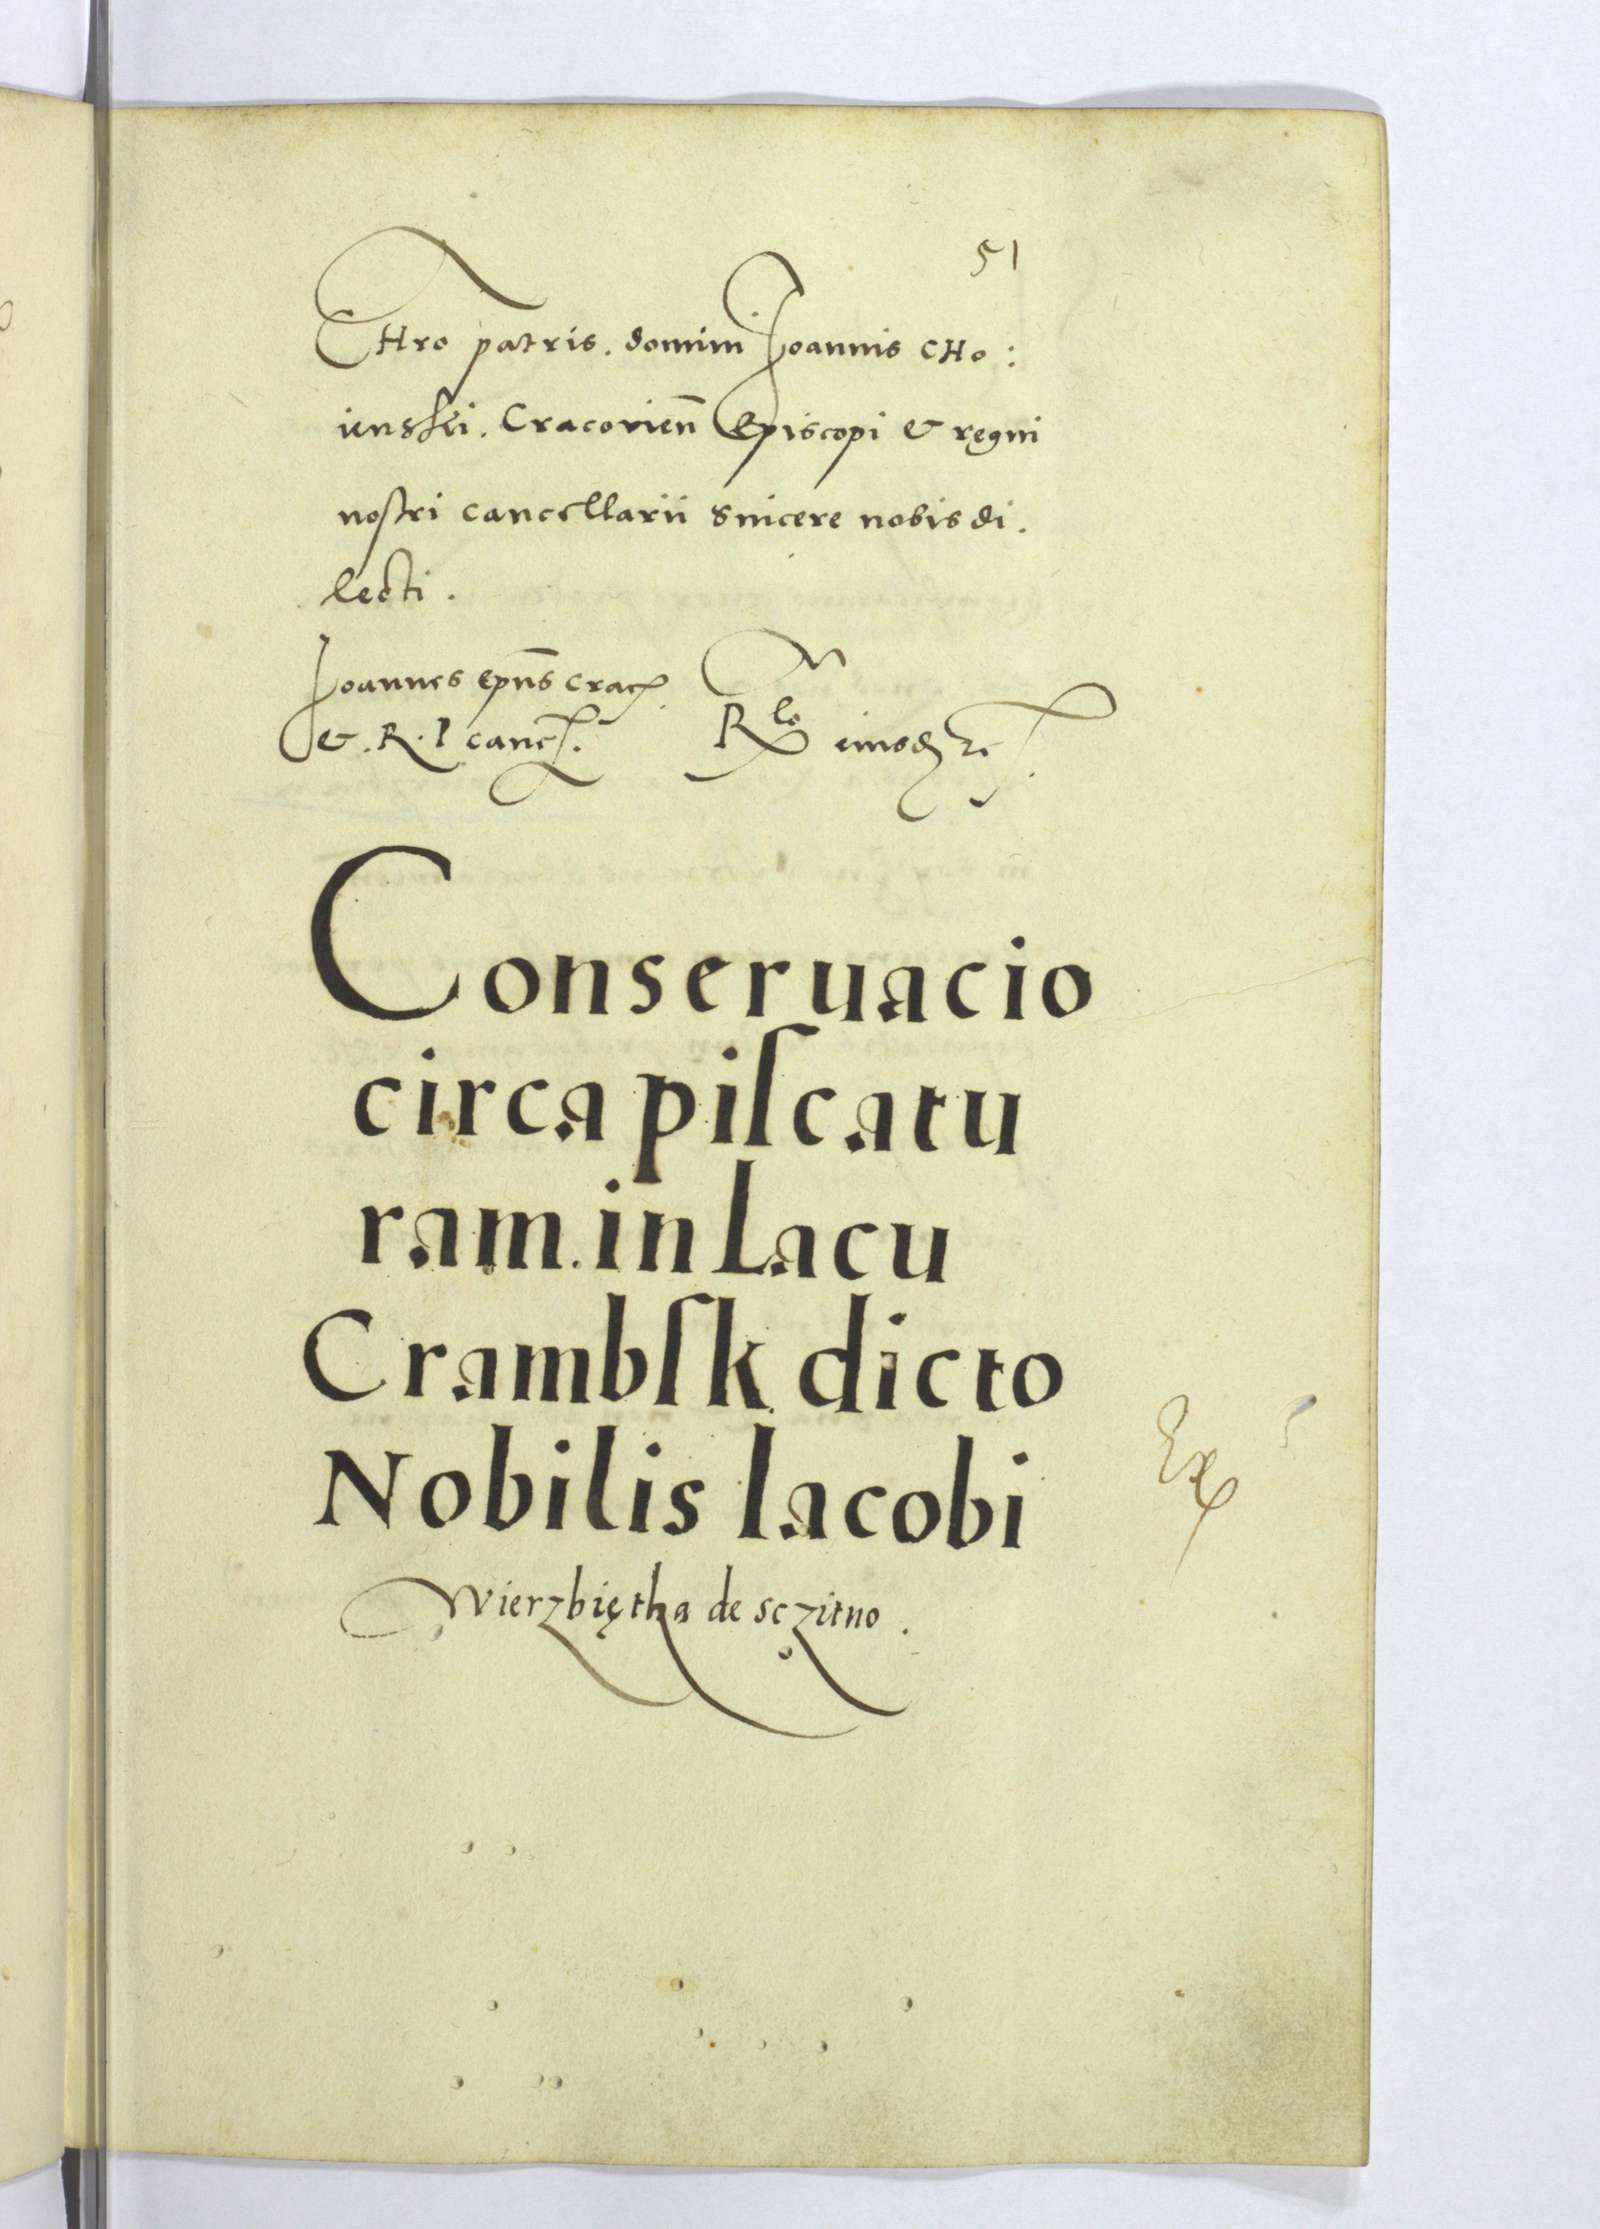 51
Chro patris. domini Joannis Cho:
ienski. Cracovien̄ Episcopi & regni
nostri cancellarii sincere nobis di.
lecti.
Joannes ep̄us crac.
&. R. P canc. Rlo eiusdꝫ ꝛc
Conseruacio
circa piſcatu
ram. in Lacu
Crambſk dicto
Nobilis Iacobi
Wierzbiętha de sczitno.
Ex